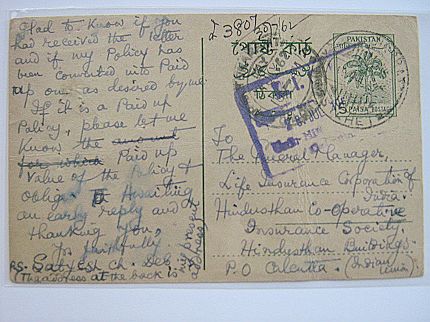 Glad to know if you
had received the letter
and if my Policy has
been converted into Paid
up one as desired by me.
If it is a Paid up
Policy, please let me
know the amount
for which Paid up
Value of the Policy &
oblige. Awaiting
an early reply and
thanking you,
Yours faithfully
Satyesh Ch. Deb
P.S. (The address at the back is
my present
address)
পোস্ট কার্ড
ঠিকানা
PAKISTAN
5 PAISA POSTAGE
To
The General Manager,
Life Insurance Corporation of
India
Hindusthan Co-operative
Insurance Society,
Hindusthan Buildings
P.O Calcutta (Indian
Union)